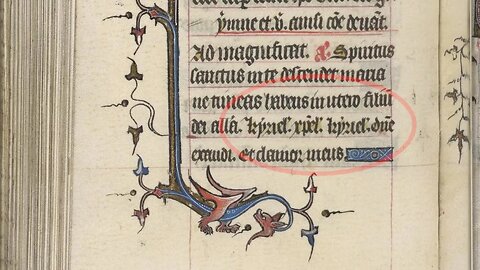 ẏmne et. v̄. causi cōe deuāt.
Ad magnificat. a. Spiritus
sanctus in te descendet maria
ne timeas habens in utero filiū
dei allā. kyriel'. xp̄el'. kyriel'. Dn̄e
exaudi. Et clamor meus